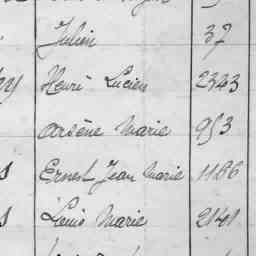 Julien 37
Henri Lucien 2343
Arsène Marie 953
Ernest Jean Marie 1186
Louis Marie 2141